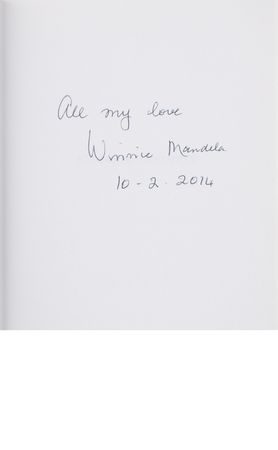 All my love
Winnie Mandela
10-2.2014